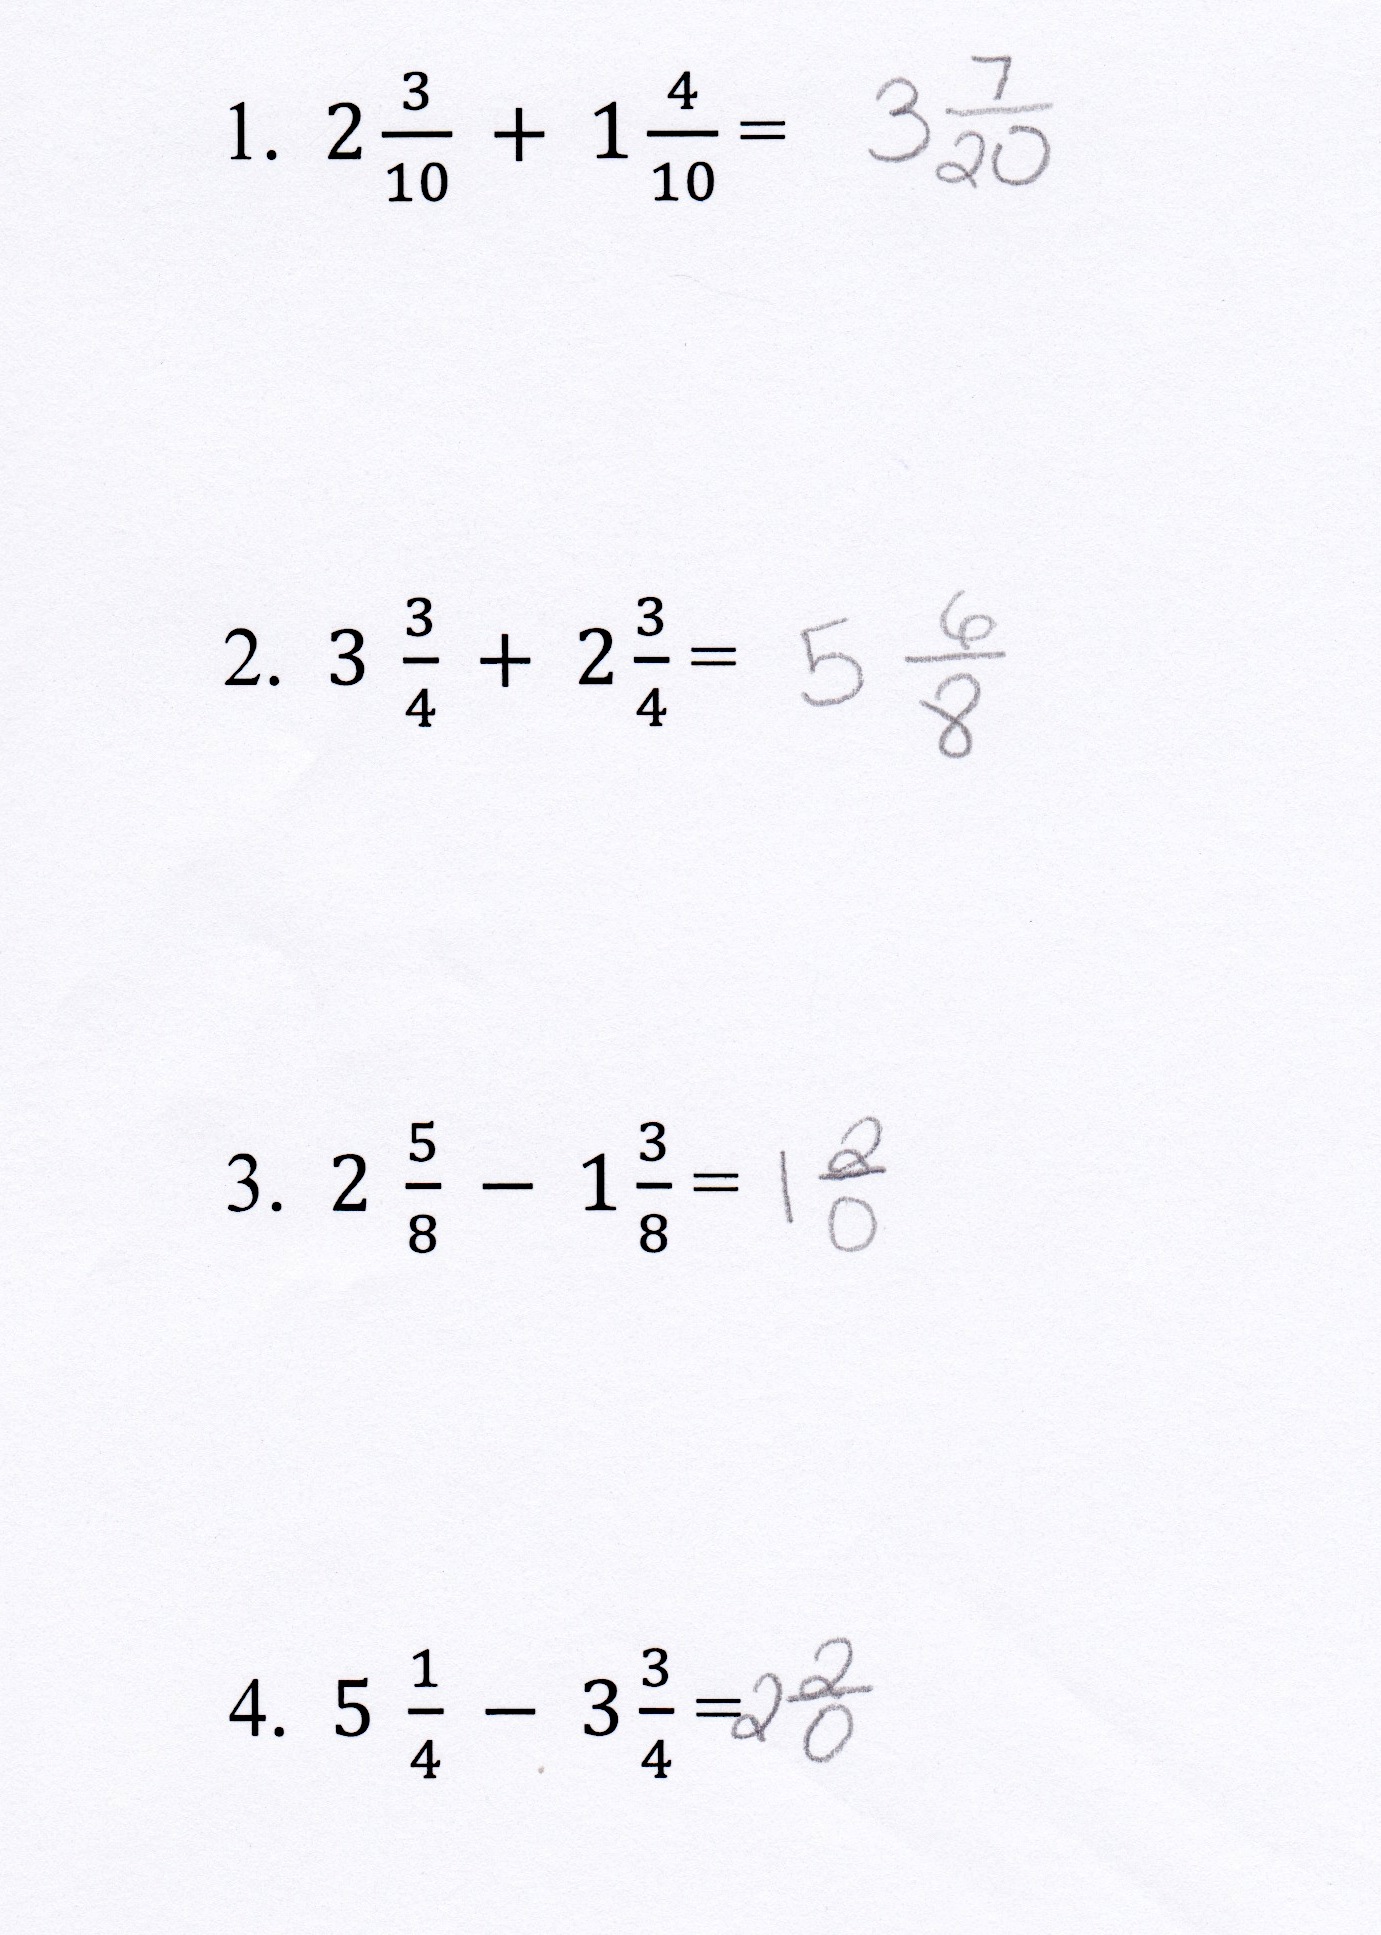 1. 2 3/10 + 1 4/10 = 3 7/20
2. 3 3/4 + 2 3/4 = 5 6/8
3. 2 5/8 − 1 3/8 = 1 2/0
4. 5 1/4 − 3 3/4 = 2 2/0